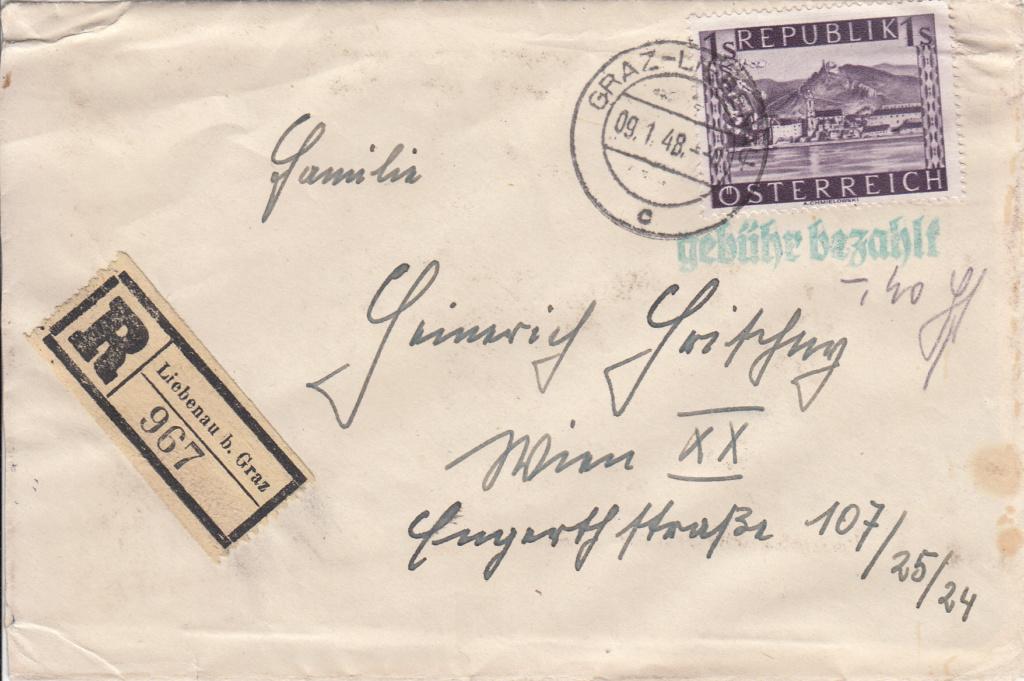 1S REPUBLIK 1S
ÖSTERREICH
A.CHMIELOWSKI
GRAZ-LIEBENAU
09.1.48.
c
gebühr bezahlt
-,40
Familie
Heinrich
Wien XX
Engerthstraße 107/25/24
R
Liebenau b. Graz
967